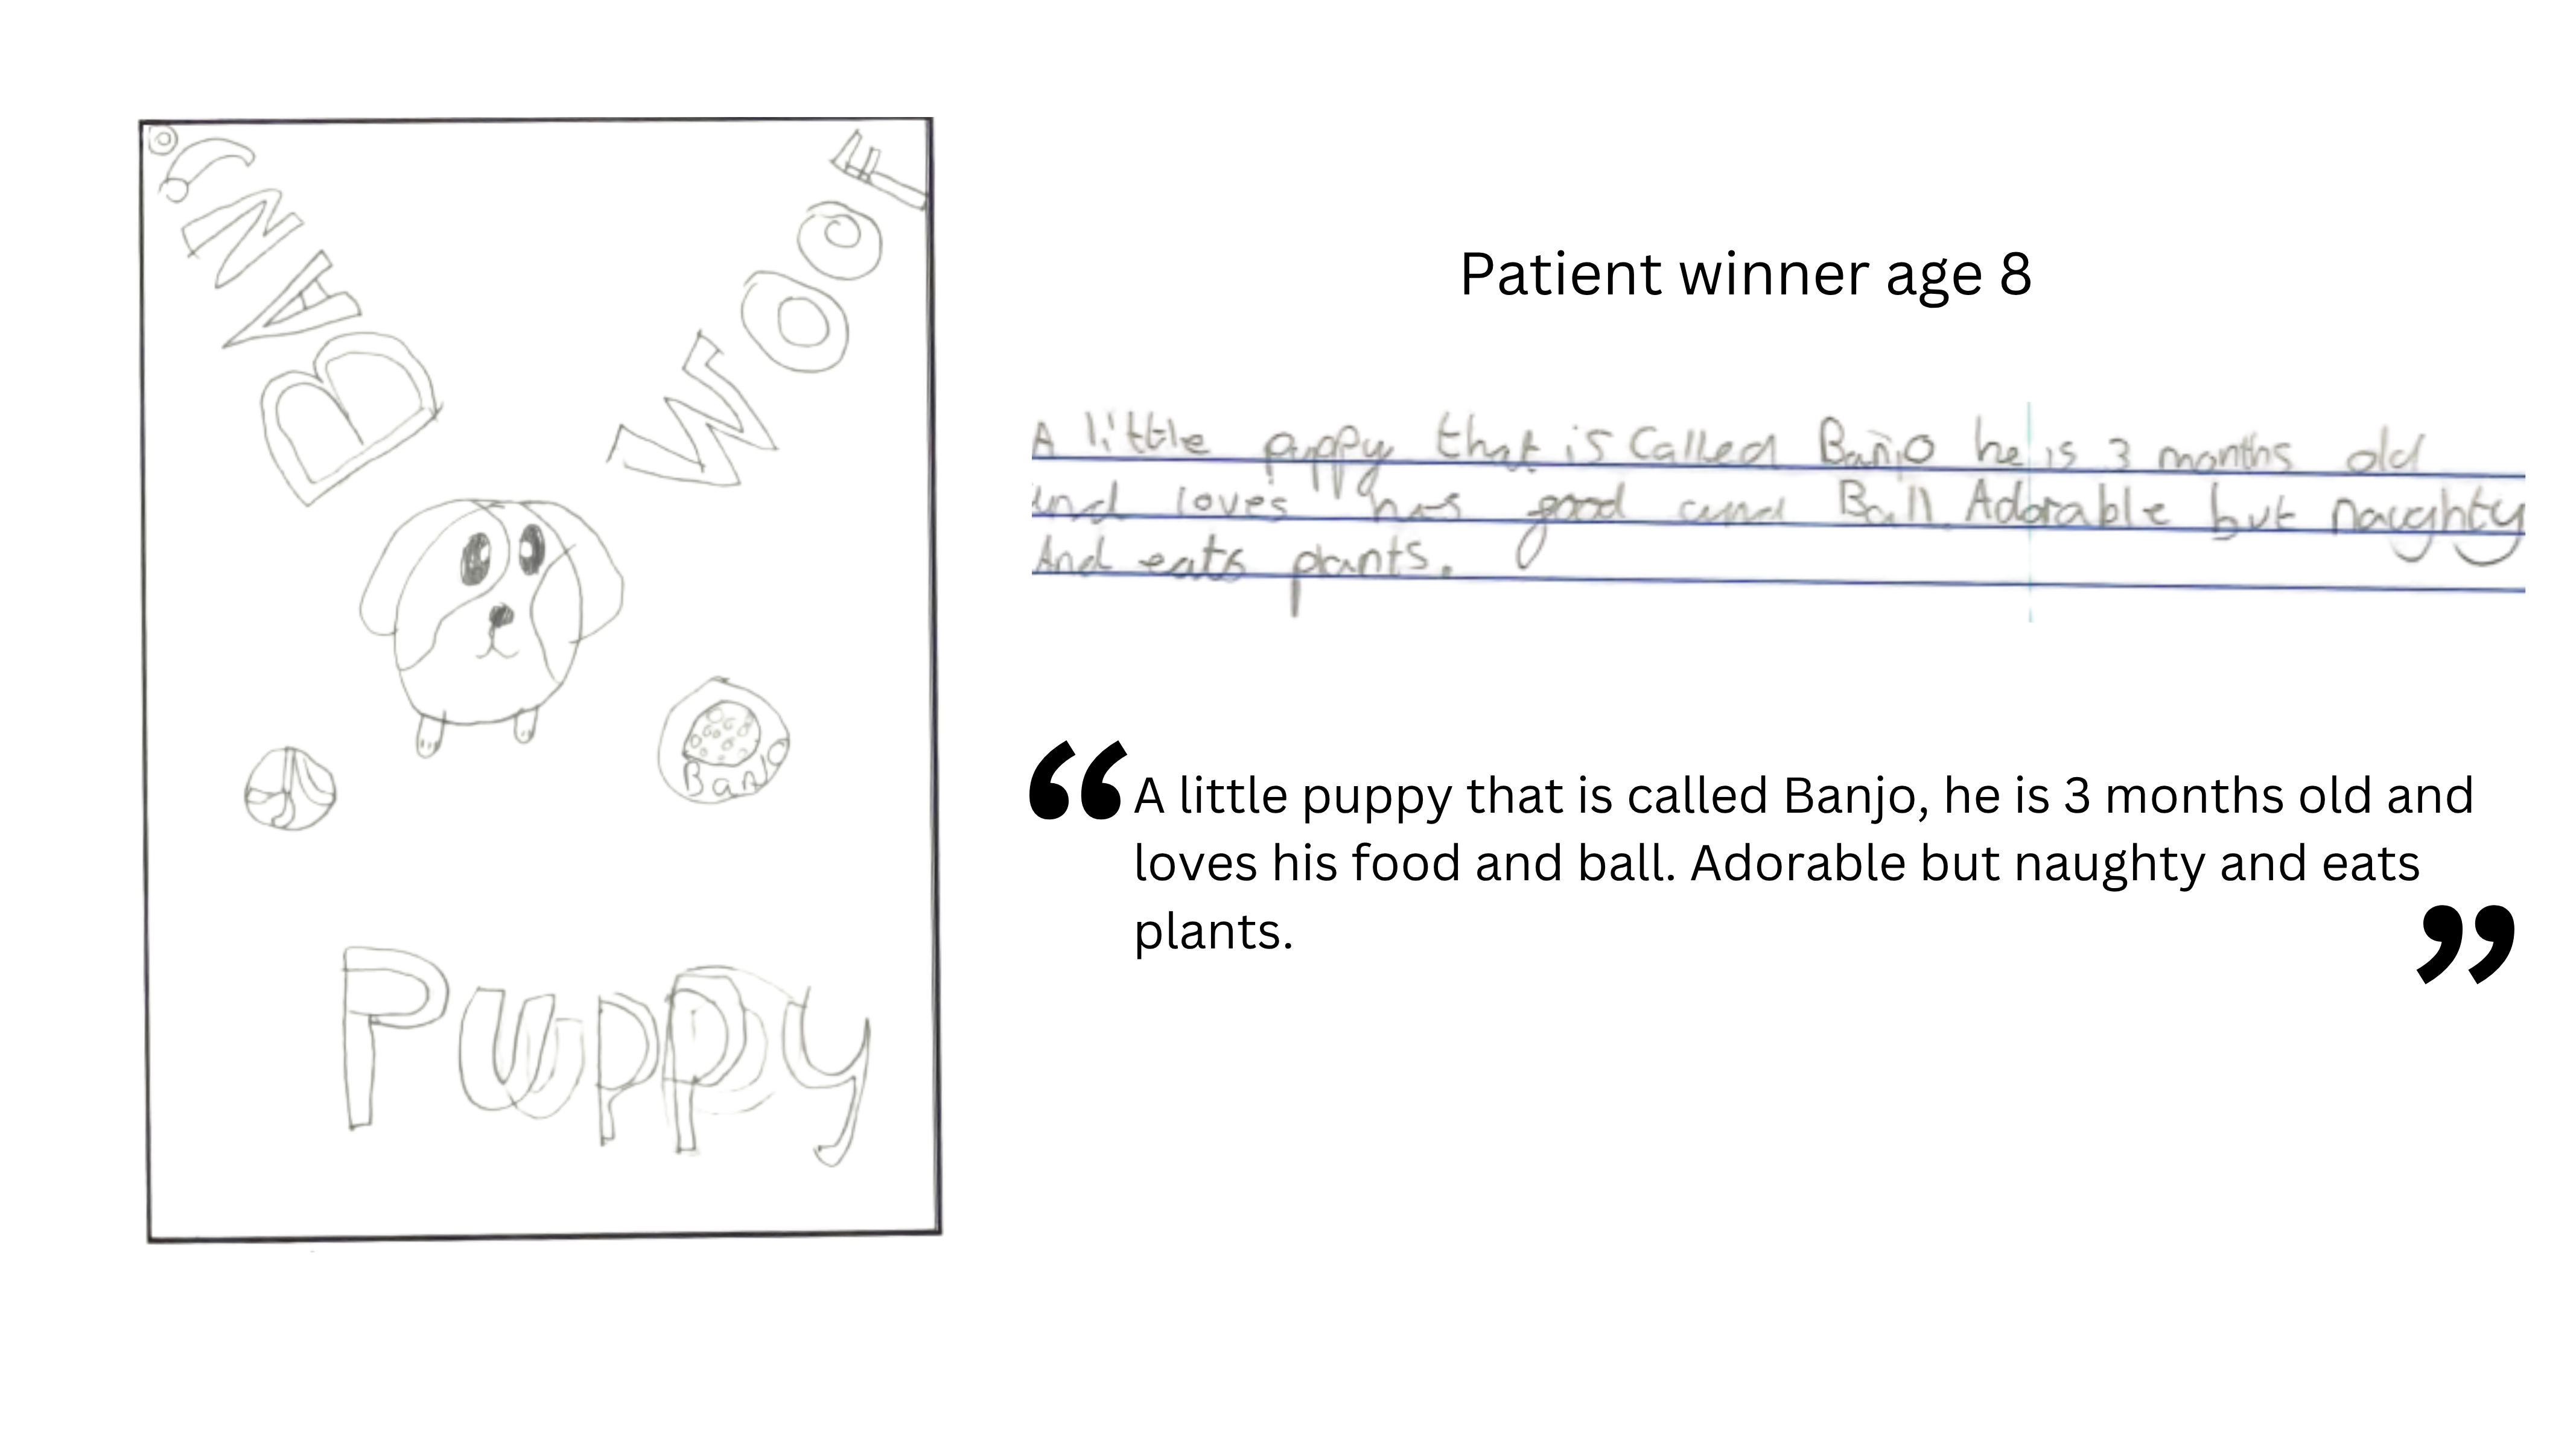 BANJO
WOOF
Banjo
Puppy
Patient winner age 8
A little puppy that is Called Banjo he is 3 months old
and loves his good and Ball. Adorable but naughty
And eats plants.
“A little puppy that is called Banjo, he is 3 months old and
loves his food and ball. Adorable but naughty and eats
plants.”